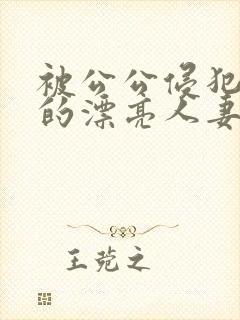 被公公侵犯
的漂亮人妻
王菀之